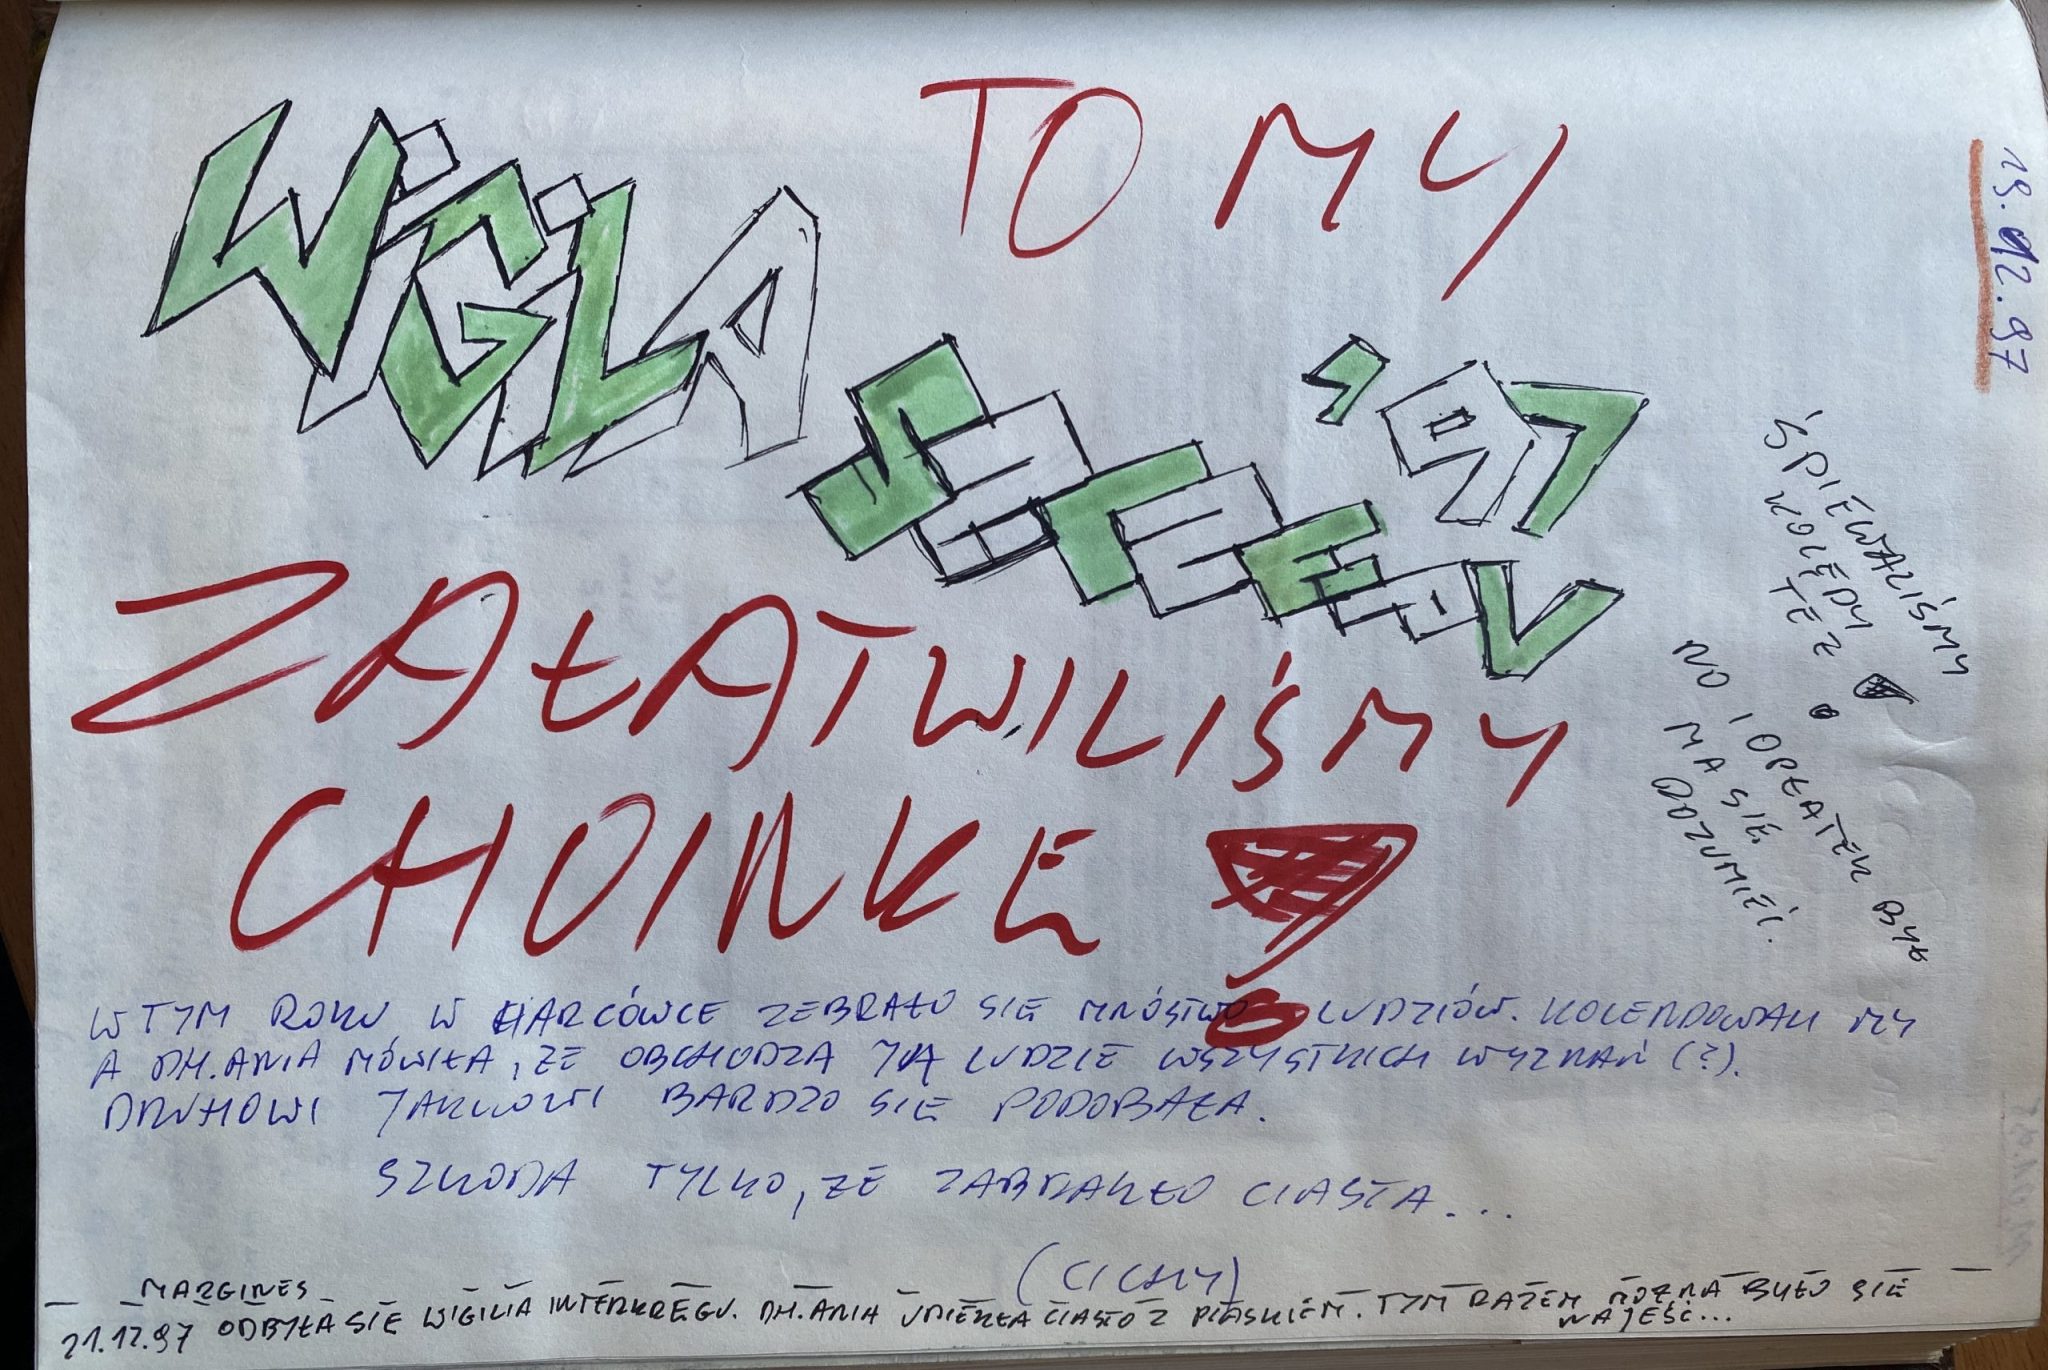 TO MY
19.12.97
WIGILIA
'97
ZAŁATWILIŚMY
CHOINKĘ
ŚPIEWALIŚMY
KOLĘDY
TEŻ
NO I OPŁATEK BYŁ
MA SIĘ
ROZUMIEĆ.
W TYM ROKU W HARCÓWCE ZEBRAŁO SIĘ MNÓSTWO LUDZIÓW. KOLENDOWALI MY
A DH. ANIA MÓWIŁA, ŻE OBCHODZĄ JĄ LUDZIE WSZYSTKICH WYZNAŃ (?).
DRUHOWI JARKOWI BARDZO SIĘ PODOBAŁA.
SZKODA TYLKO, ŻE ZABRAKŁO CIASTA...
(CICHY)
MARGINES
21.12.97 ODBYŁA SIĘ WIGILIA INTERKRĘGU. DH. ANIA UPIEKŁA CIASTO Z PIASKIEM. TYM RAZEM MOŻNA BYŁO SIĘ
NAJEŚĆ...